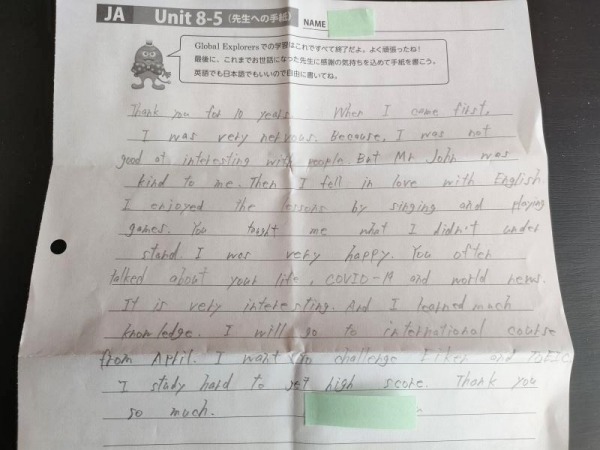 JA Unit 8-5 (先生への手紙) NAME
Global Explorersでの学習はこれですべて終了だよ。よく頑張ったね！
最後に、これまでお世話になった先生に感謝の気持ちを込めて手紙を書こう。
英語でも日本語でもいいので自由に書いてね。
Thank you for 10 years. When I came first,
I was very nervous. Because, I was not
good at interesting with people. But Mr John was
kind to me. Then I fell in love with English.
I enjoyed the lessons by singing and playing
games. You taught me what I didn't under
stand. I was very happy. You often
talked about your life, COVID-19 and world news.
It is very interesting. And I learned much
knowledge. I will go to international course
from April. I want to challenge Eiken and TOEIC
I study hard to get high score. Thank you
so much.